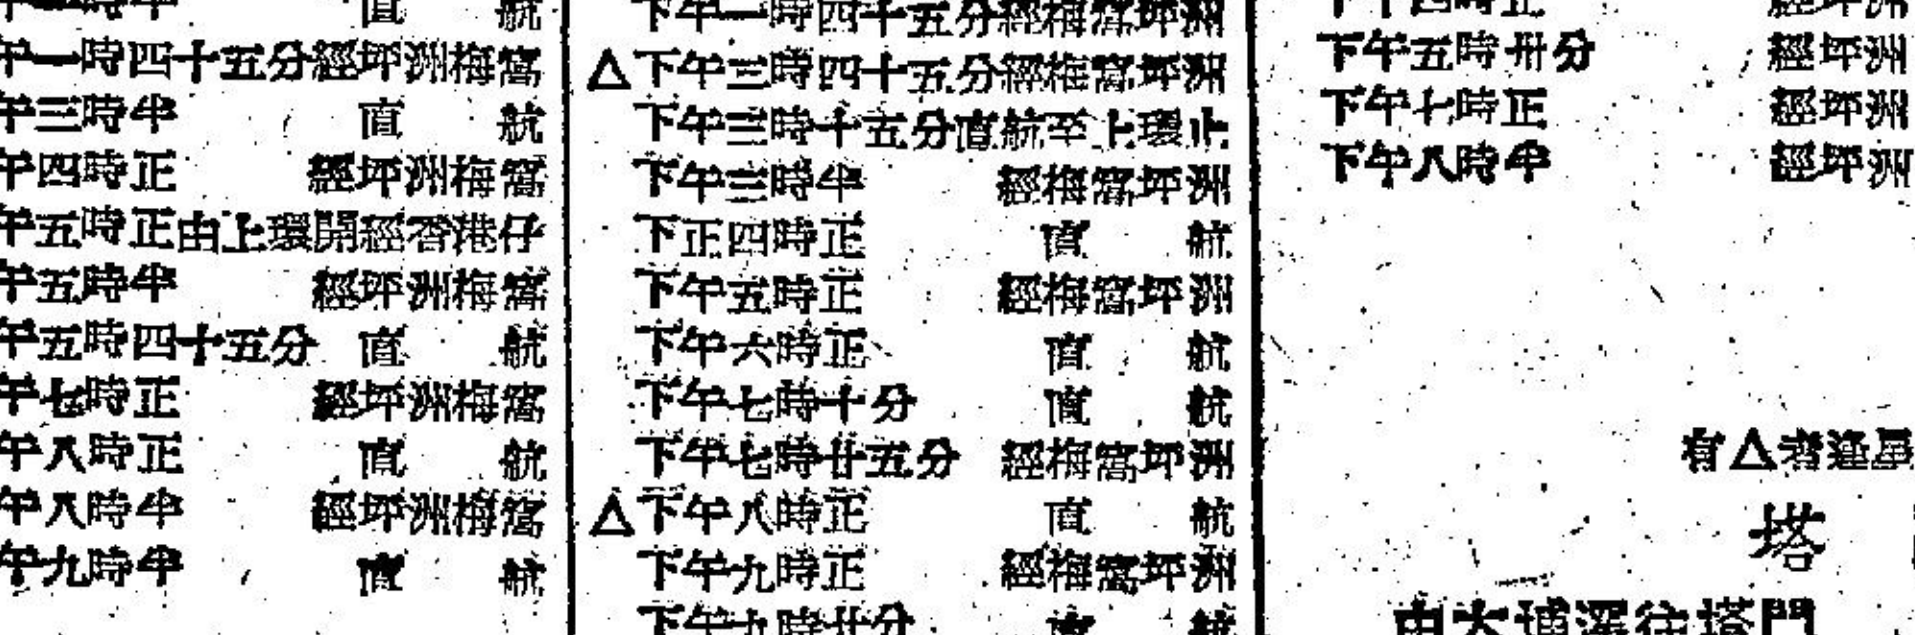 午一時四十五分經坪洲梅窩
午三時半 直 航
午四時正 經坪洲梅窩
午五時正由上環開經香港仔
午五時半 經坪洲梅窩
午五時四十五分 直 航
午七時正 經坪洲梅窩
午八時正 直 航
午八時半 經坪洲梅窩
午九時半 直 航
下午一時四十五分經梅窩坪洲
△下午三時四十五分經梅窩坪洲
下午三時十五分直航至上環止
下午三時半 經梅窩坪洲
下正四時正 直 航
下午五時正 經梅窩坪洲
下午六時正 直 航
下午七時十分 直 航
下午七時廿五分 經梅窩坪洲
△下午八時正 直 航
下午九時正 經梅窩坪洲
下午九時廿分 直 航
下午四時正 經坪洲
下午五時卅分 經坪洲
下午七時正 經坪洲
下午八時半 經坪洲
有△者逢星
塔
由大埔滘往塔門